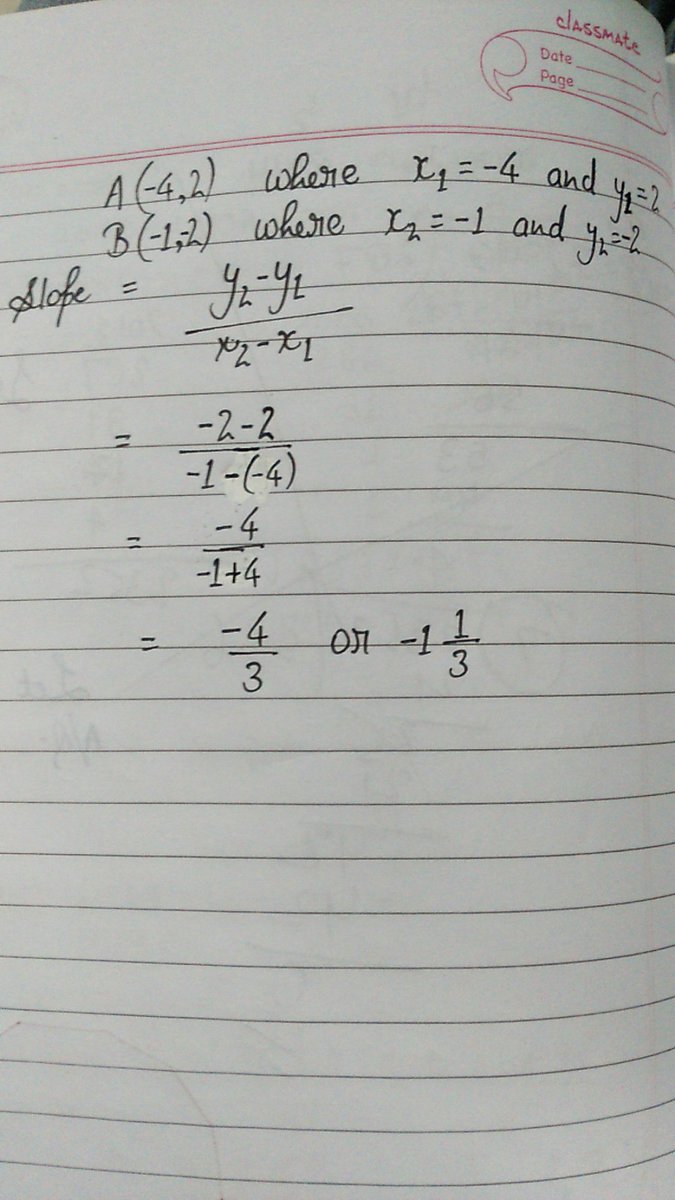 classmate
Date
Page
A(-4,2) where x₁ = -4 and y₁=2
B(-1,-2) where x₂ = -1 and y₂=-2
Slope = y₂-y₁
x₂-x₁
= -2-2
-1-(-4)
= -4
-1+4
= -4 or -1 1
3 3